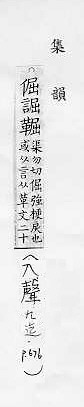 集韻
倔誳𩋾渠勿切倔強梗戾也
或从言从革文二十
(入聲九迄·p676)